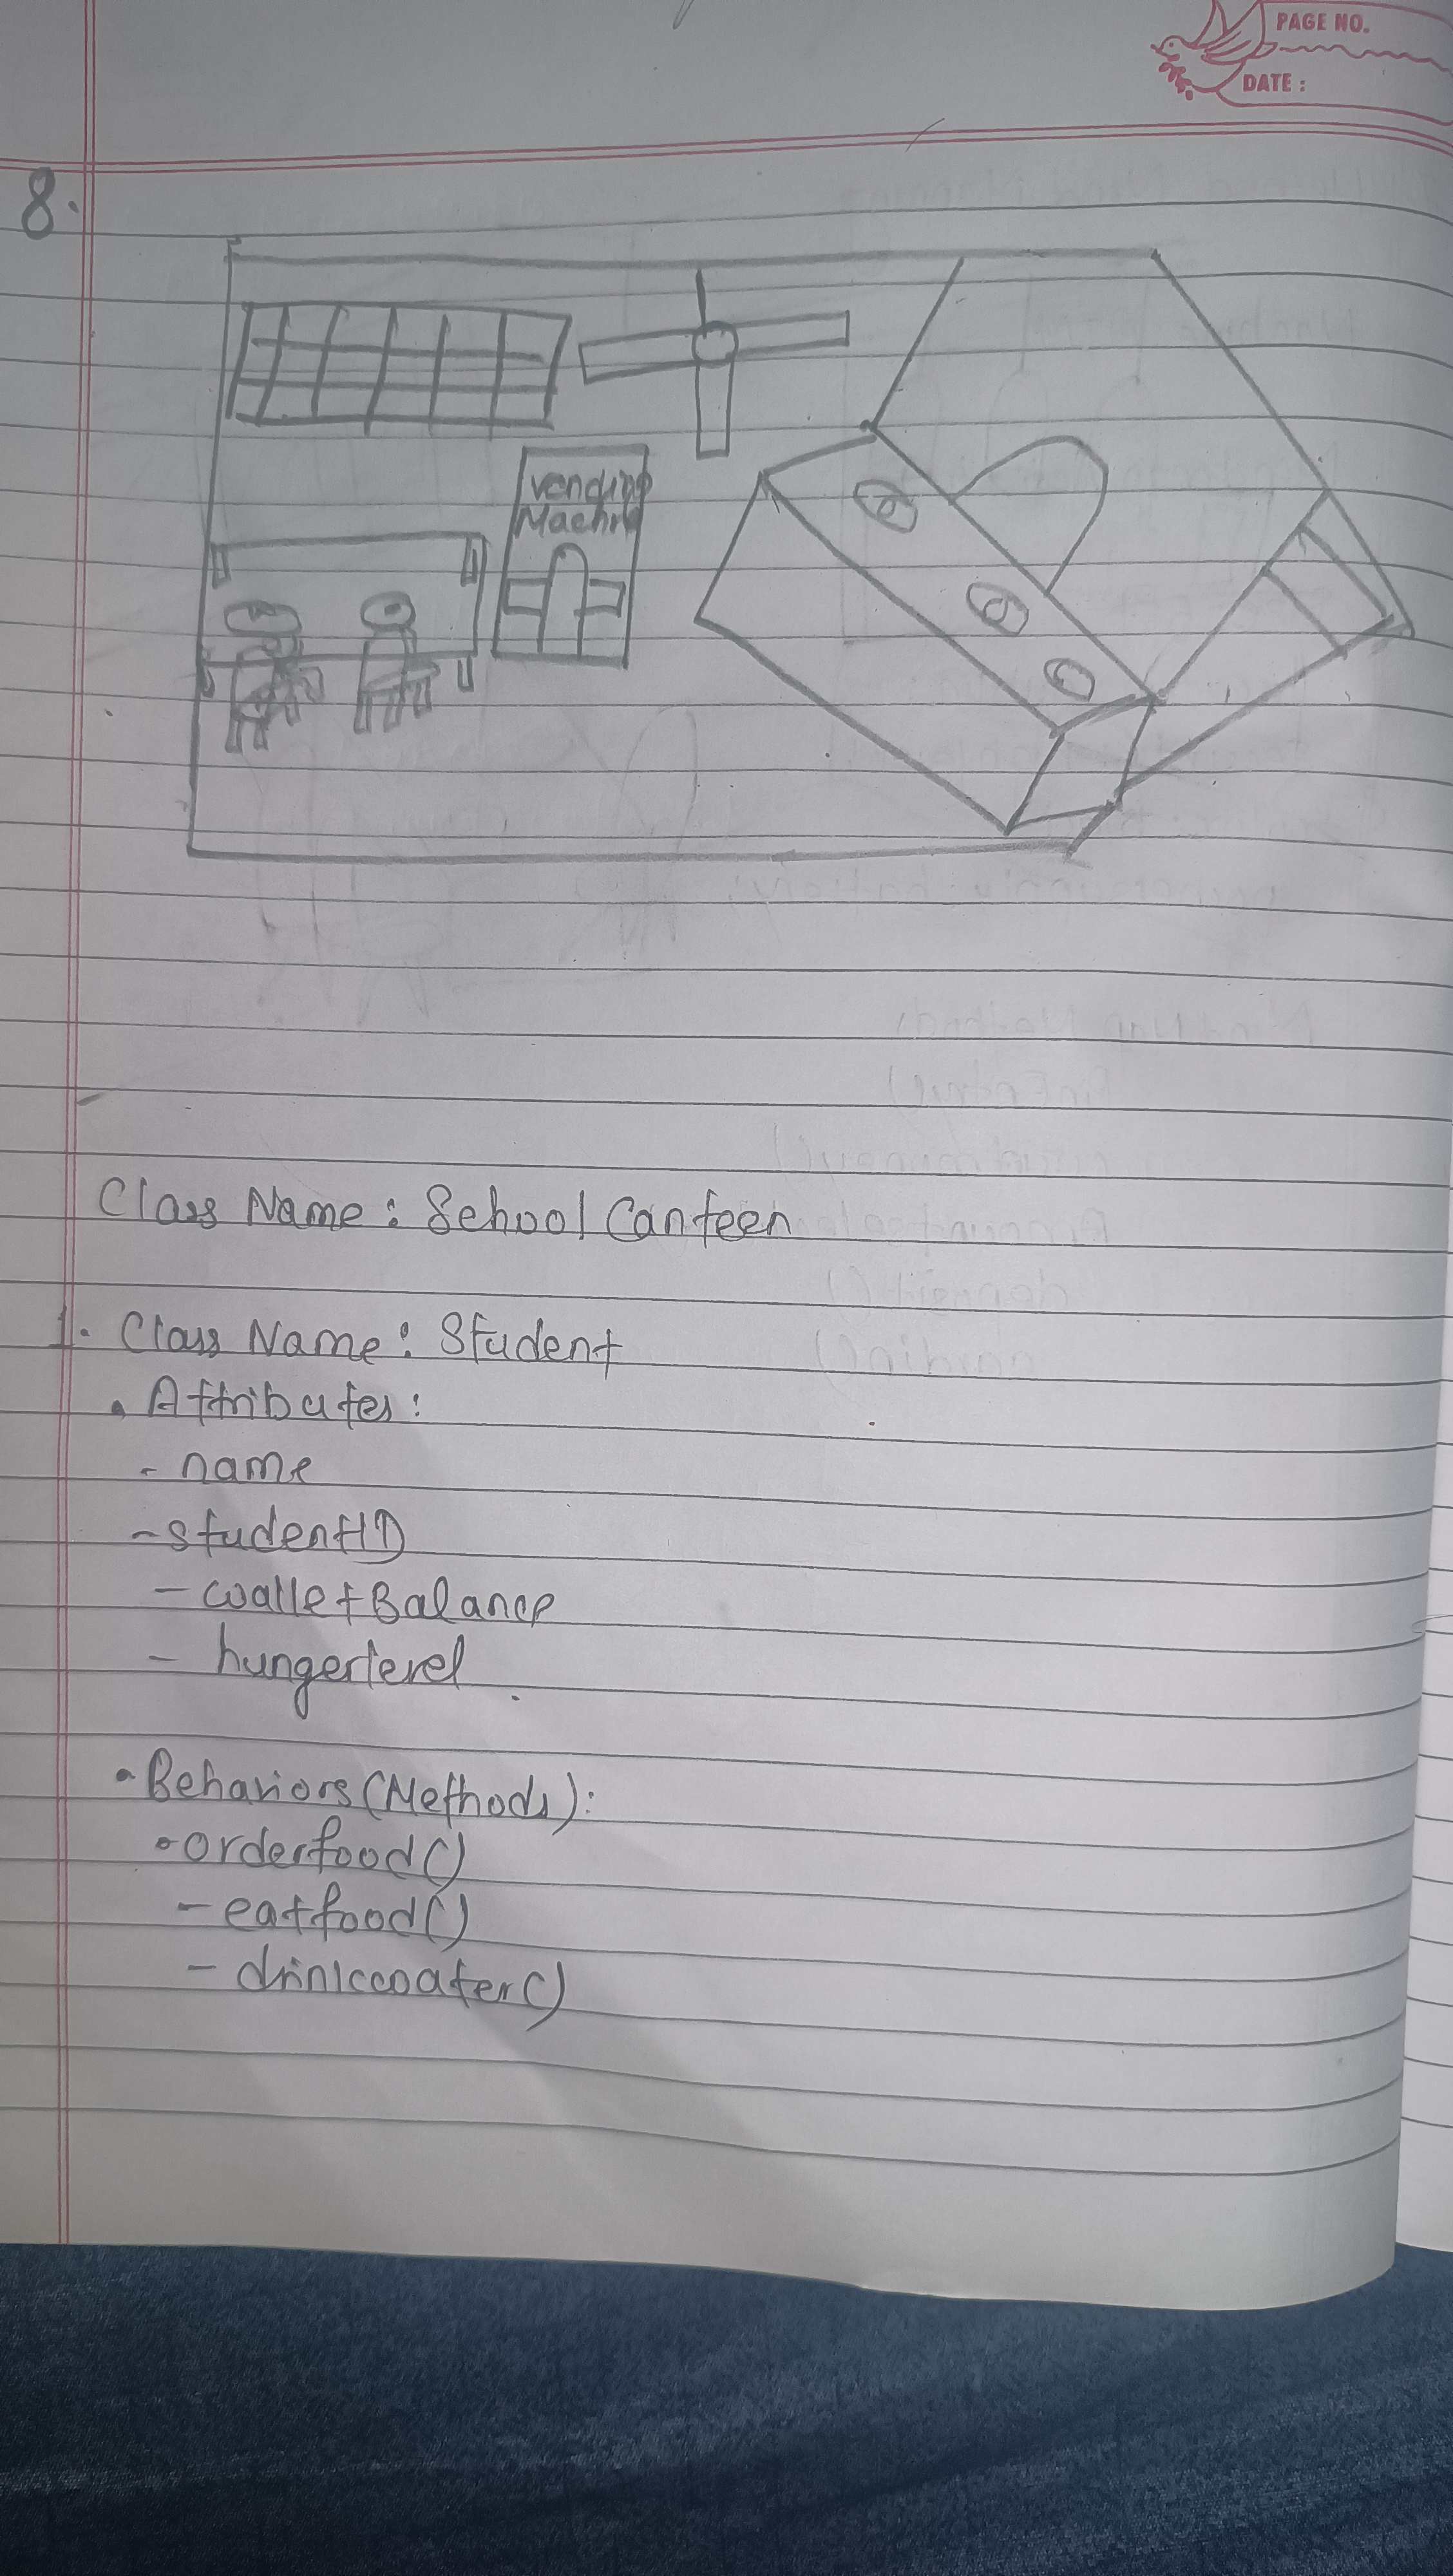 PAGE NO.
DATE :
8.
Vending
Machine
Class Name: School Canteen
1. Class Name: Student
• Attributes:
- name
- studentID
- walletBalance
- hungerlevel
• Behaviors (Methods):
• orderfood()
- eatfood()
- drinkwater()